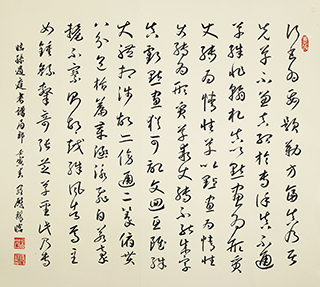 行書為要題勒方畐真乃居
先草不兼真殆於專謹真不通
草殊非翰札真以點畫為形質
使轉為情性草以點畫為情性
使轉為形質草乖使轉不能成字
真虧點畫猶可記文迴互雖殊
大體相涉故亦傍通二篆俯貫
八分包括篇章涵泳飛白若毫
釐不察則胡越殊風者焉至
如鍾繇隸奇張芝草聖此乃專
臨孫過庭書譜局部 壬寅